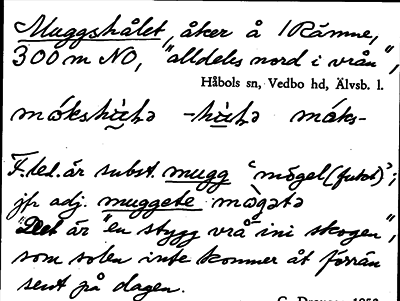 Muggshålet, åker å 1 Rämne,
300 m NO, "alldeles nord i vrån",
Håbols sn, Vedbo hd, Älvsb. l.
mókshùlə -hùlə móks-
F. led. är subst. mugg 'mögel (fukt)';
jfr adj. muggete mògətə
"Det är "en stygg vrå ini skogen",
som solen inte kommer åt förrän
sent på dagen.